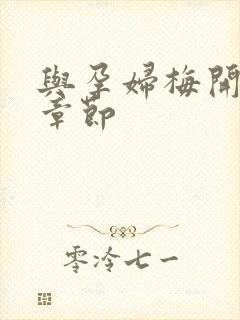 與孕婦梅開
章節
零泠七一